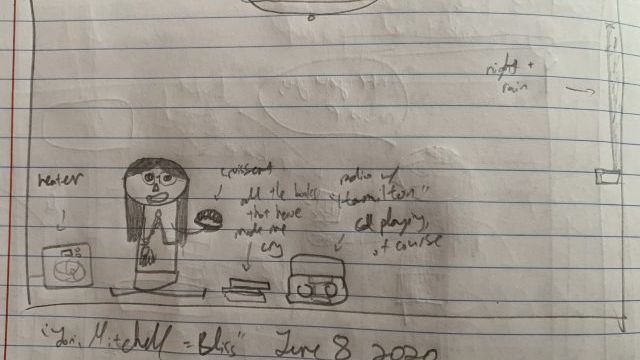 night +
rain
heater
croissant
all the books
that have
made me
cry
radio w/
"Hamilton"
CD playing,
of course
Mitchell = Bliss" June 8 2020